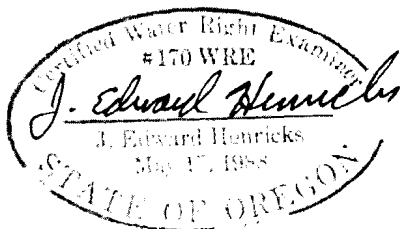 Certified Water Right Examiner
#170 WRE
J. Edward Henricks
J. Edward Henricks
May 17, 1988
STATE OF OREGON